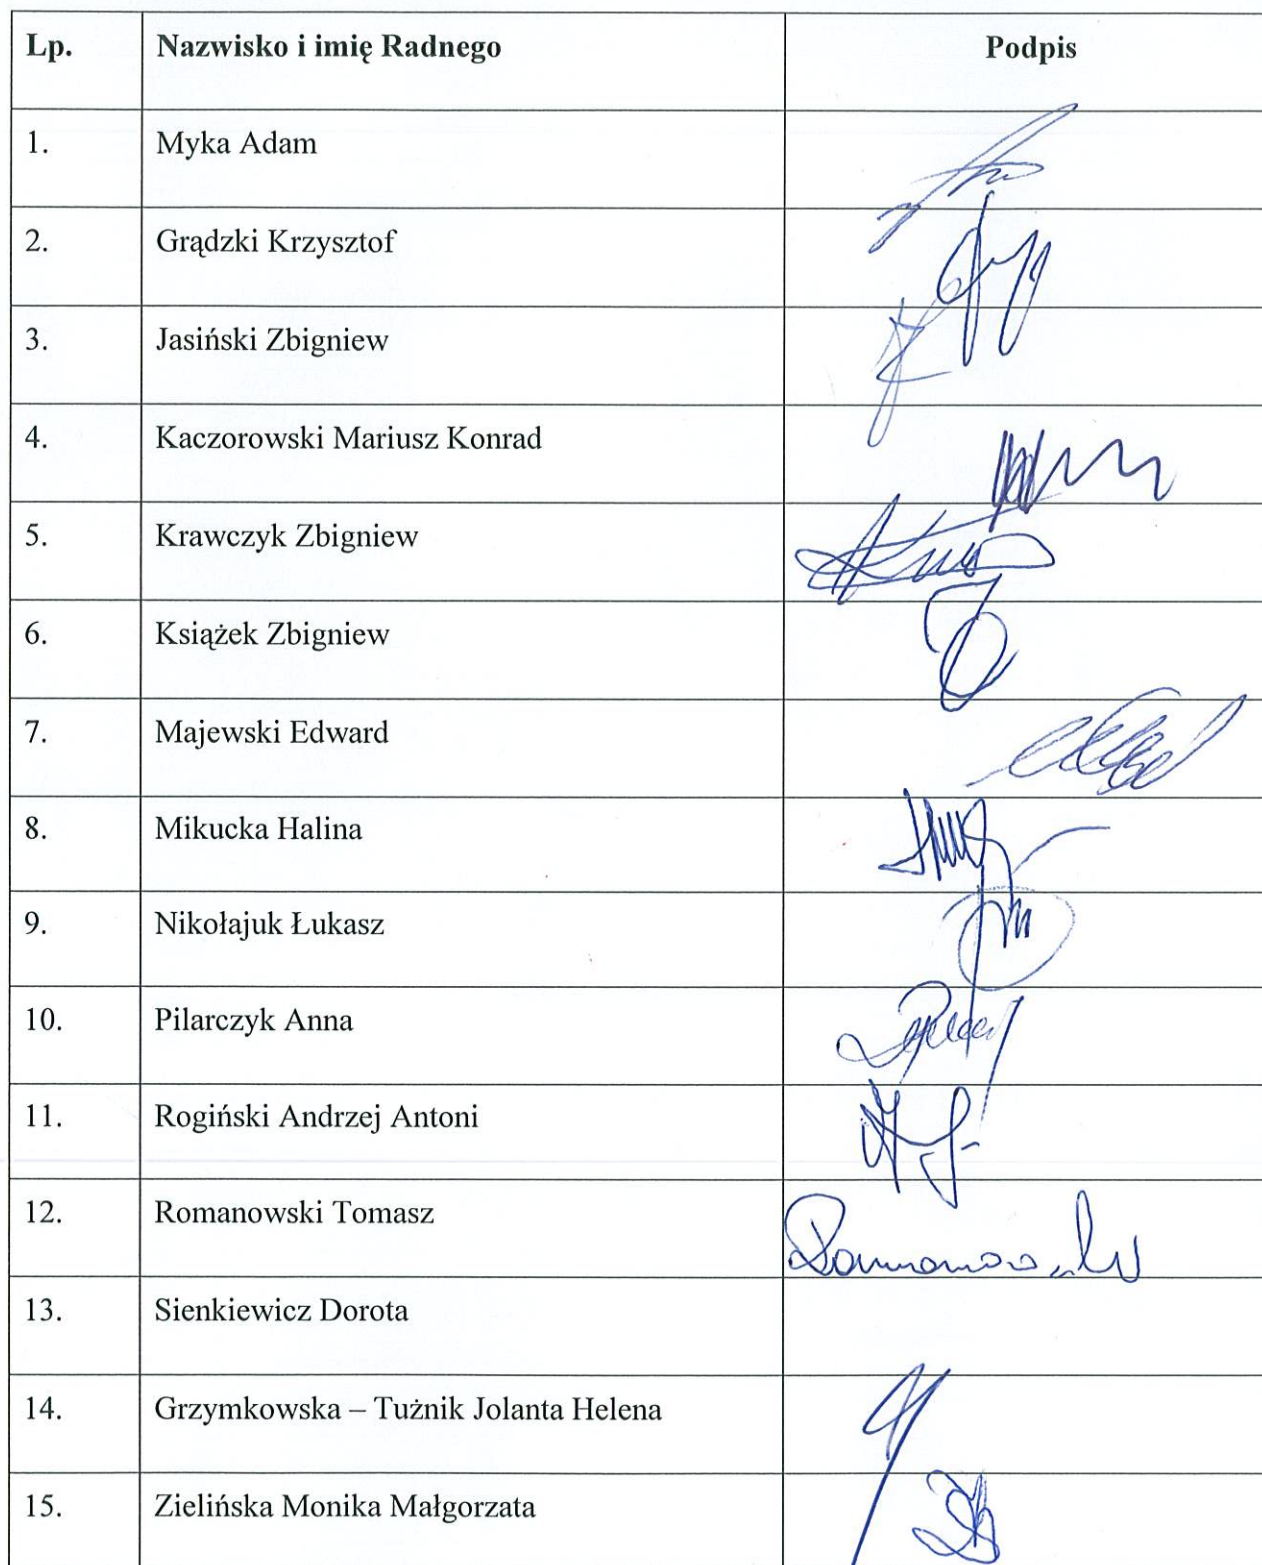 Lp. Nazwisko i imię Radnego Podpis
1. Myka Adam
2. Grądzki Krzysztof
3. Jasiński Zbigniew
4. Kaczorowski Mariusz Konrad
5. Krawczyk Zbigniew
6. Książek Zbigniew
7. Majewski Edward
8. Mikucka Halina
9. Nikołajuk Łukasz
10. Pilarczyk Anna
11. Rogiński Andrzej Antoni
12. Romanowski Tomasz
13. Sienkiewicz Dorota
14. Grzymkowska – Tużnik Jolanta Helena
15. Zielińska Monika Małgorzata